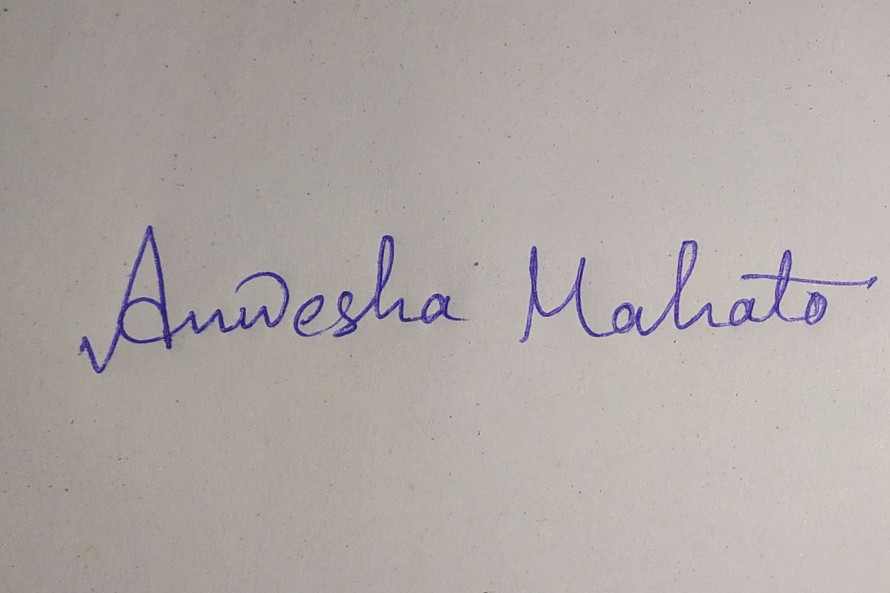 Anwesha Mahato